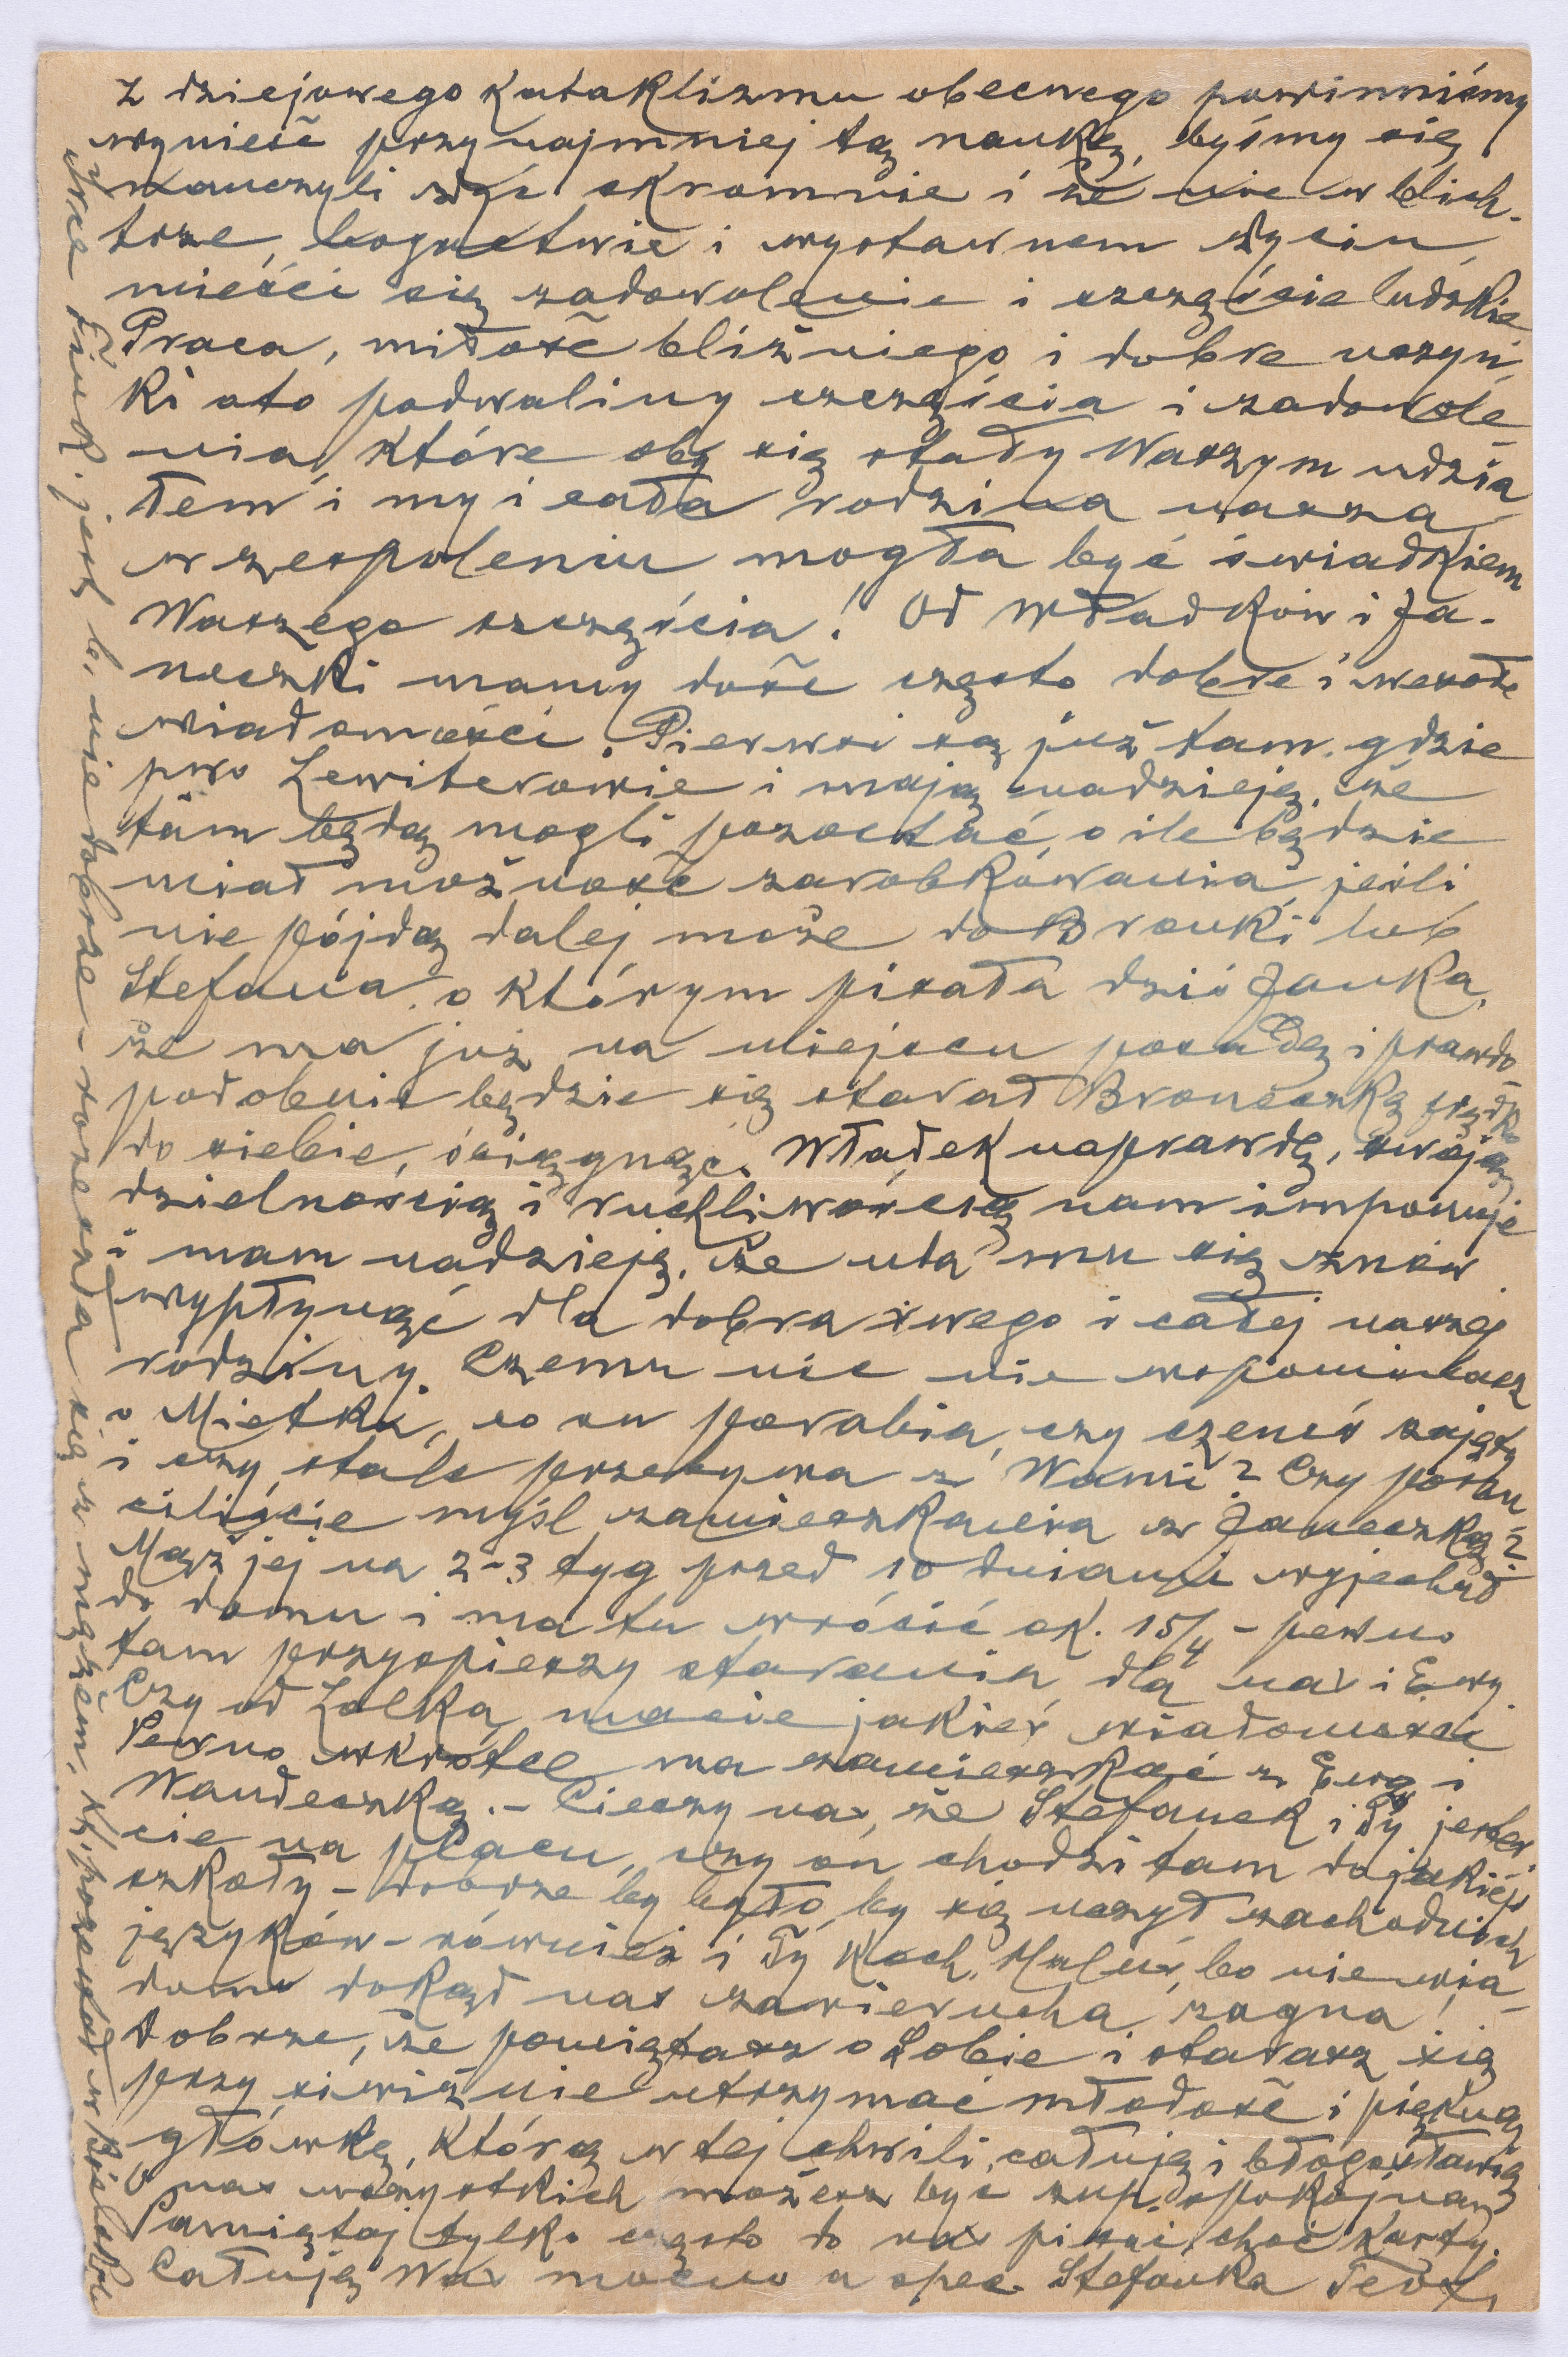 z dziejowego kataklizmu obecnego powinniśmy
wynieść przynajmniej tę naukę, byśmy się
nauczyli żyć skromnie i że nie w blich-
trze, bogactwie i wystawnem życiu
mieści się zadowolenie i szczęście ludzkie
Praca, miłość bliźniego i dobre uczyn
ki oto podwaliny szczęścia i zadowole
nia, które oby się stały Waszym udzia
łem i my i cała rodzina nasza
w zespoleniu mogła być świadkiem
Waszego szczęścia! Od Władków i Ja-
neczki mamy dość często dobre i wesołe
wiadomości. Pierwsi są już tam, gdzie
pwo Lewiterowie i mają nadzieję, że
tam będą mogli pozostać, o ile będzie
miał możność zarobkowania, jeśli
nie pójdą dalej może do Bronki lub
Stefana, o którym pisała dziś Janka,
że ma już na miejscu posadę i prawdo
podobnie będzie się starał Broneczkę prędko
do siebie, ściągnąć. Władek naprawdę, swoją
dzielnością i ruchliwością nam imponuje
i mam nadzieję, że uda mu się znów
wypłynąć dla dobra swego i całej naszej
rodziny. Czemu nic nie wspominasz
o Mietku, co on porabia, czy czemś zajęty
i czy stale przebywa z Wami? Czy porzu
ciliście myśl zamieszkania z Janeczką?
Mąż jej na 2-3 tyg przed 10 dniami wyjechał
do domu i ma tu wrócić ok. 15/4 - pewno
tam przyspieszy starania dla nas i Ewy
Czy od Lolka macie jakieś wiadomości
Pewno wkrótce ma zamieszkać z Ewą i
Wandeczką. - Cieszy nas, że Stefanek i Ty jeste
cie na placu, czy on chodzi tam do jakiejś
szkoły - dobrze by było, by się uczył zachodnich
języków - również i Ty Koch. Maluś, bo nie wia-
domo dokąd nas zawierucha zagna!
Dobrze, że pamiętasz o Sobie i starasz się
przy siwiźnie utrzymać młodość i piękną
główkę, którą w tej chwili całuję i błogosławię
O nas wszystkich możesz być zup. spokojną
Pamiętaj tylko często do nas pisać choć karty.
Całuję Was mocno a spec. Stefanka Teof.
Finck. jest b. niedobrze - rozeszła się z mężem, ki, pozostał w